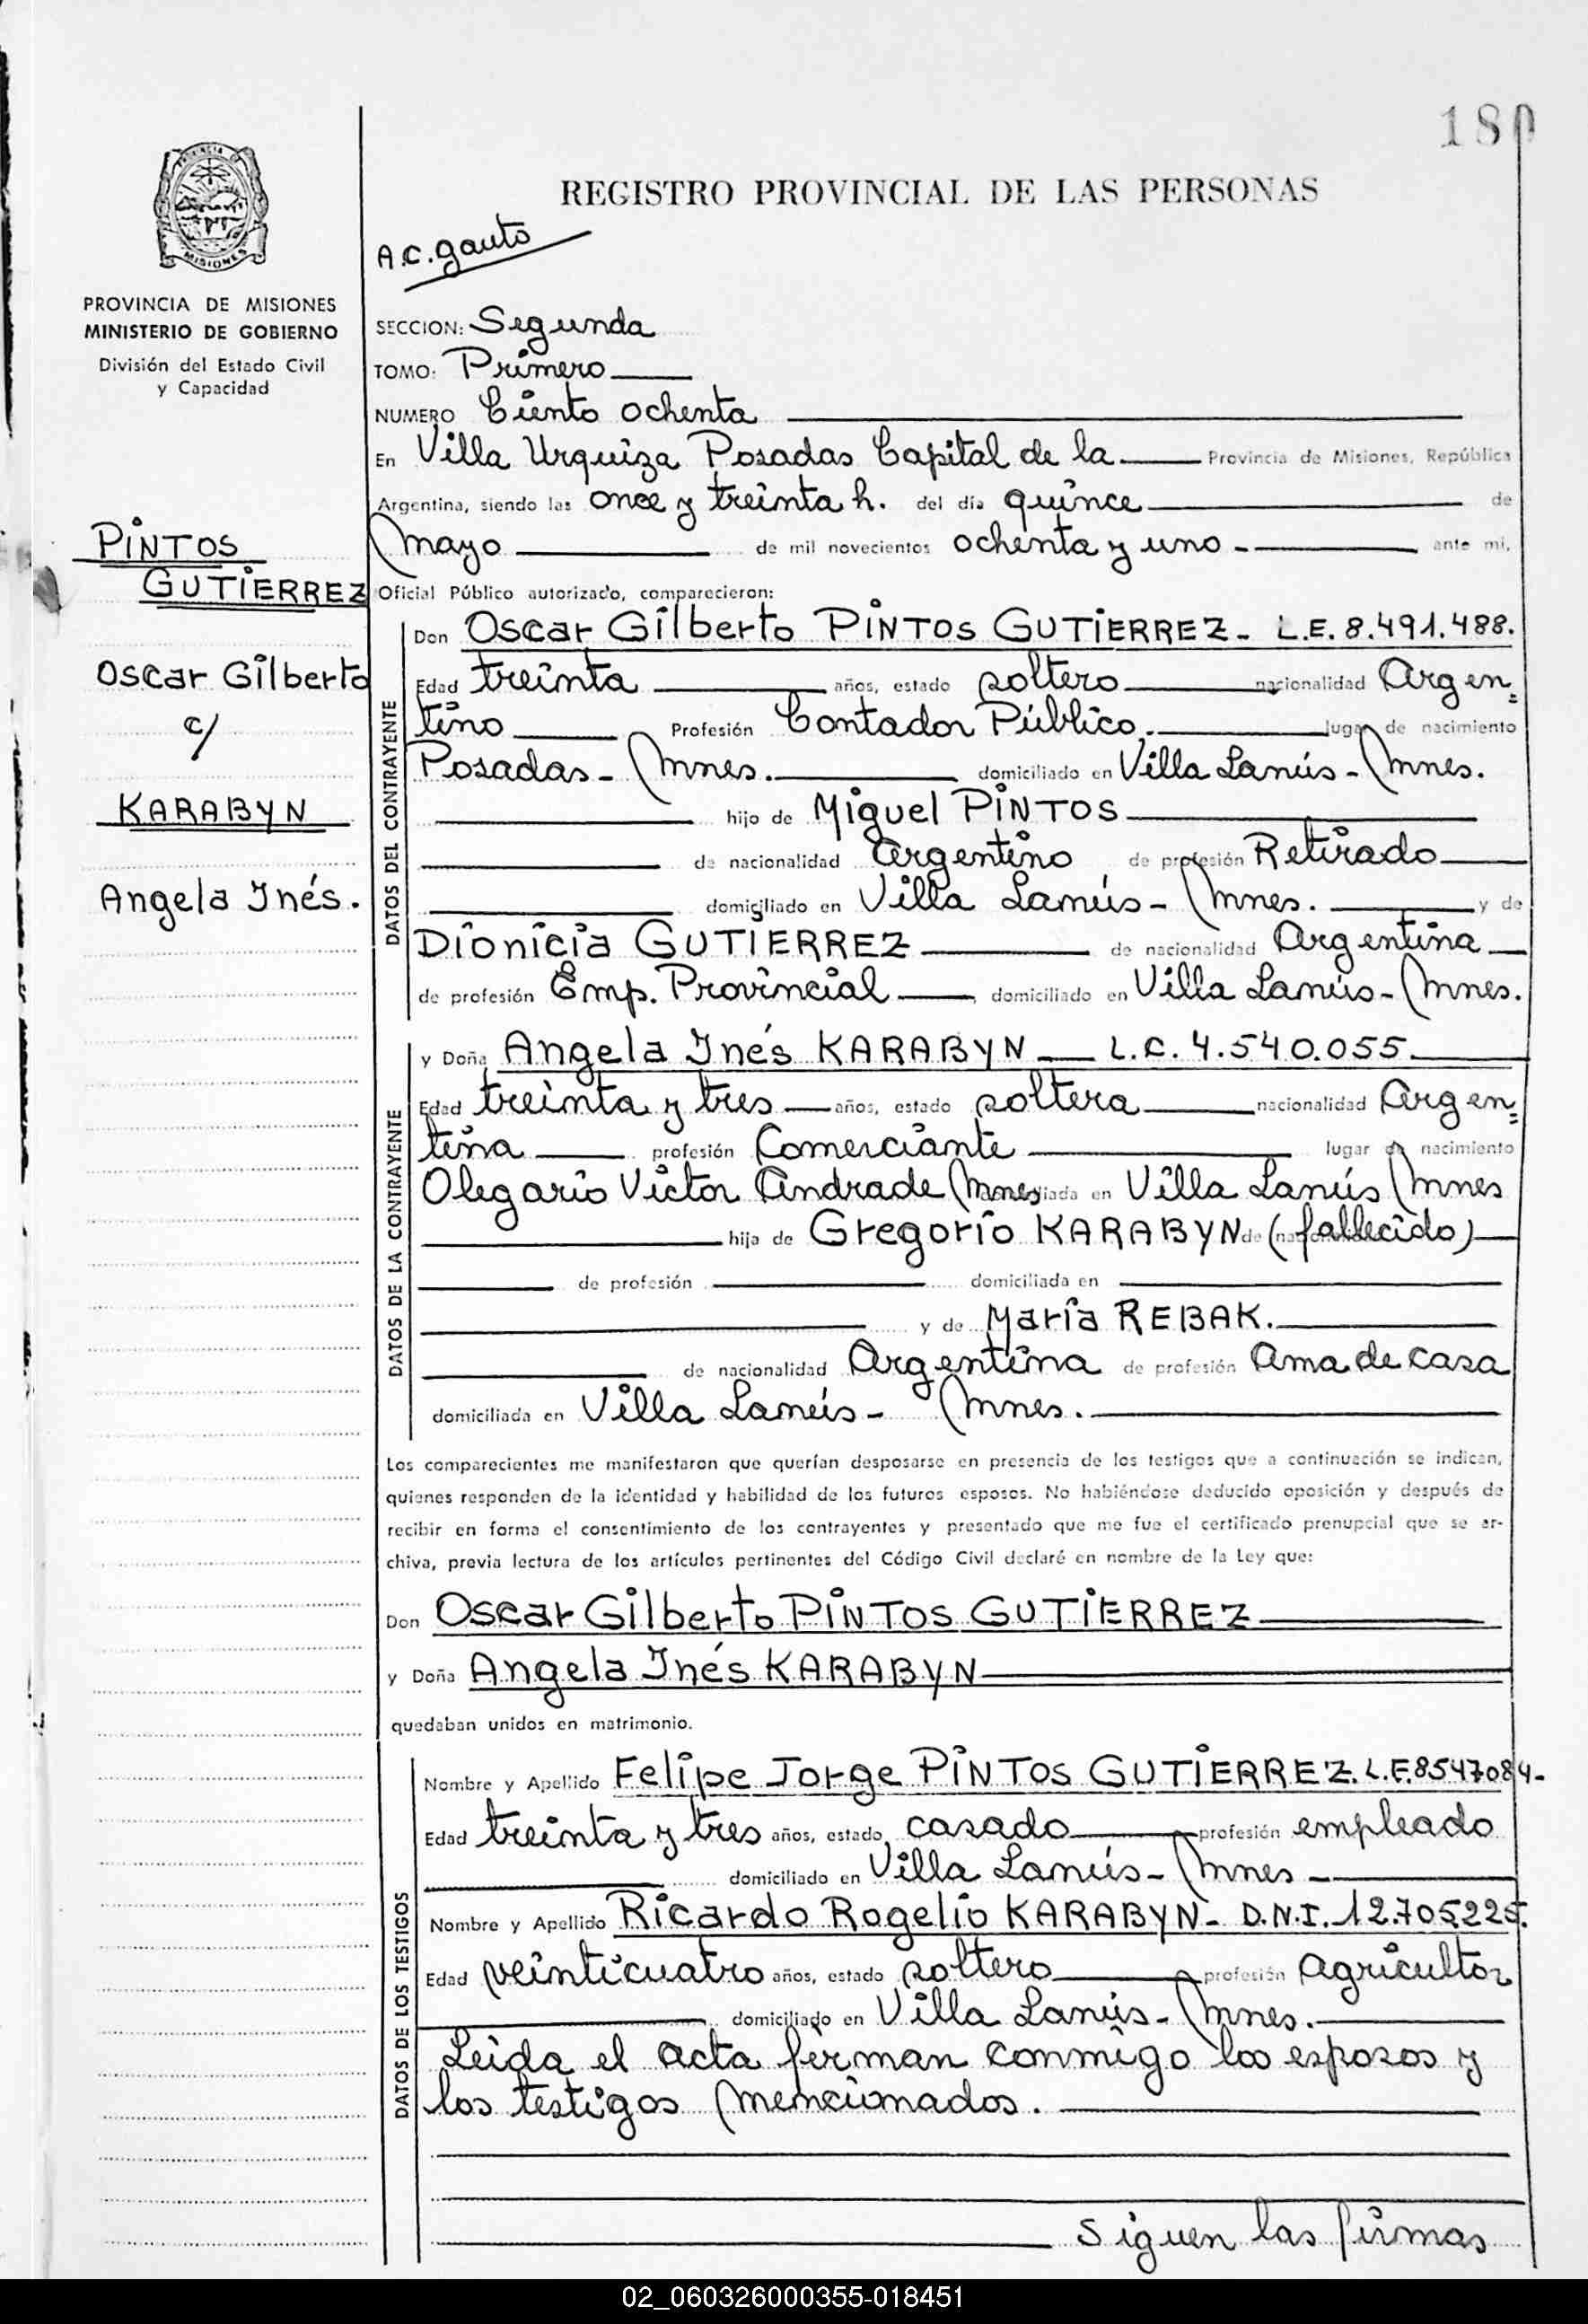 180
PROVINCIA DE MISIONES
PROVINCIA DE MISIONES
MINISTERIO DE GOBIERNO
División del Estado Civil
y Capacidad
PINTOS
GUTIERREZ
Oscar Gilberto
c/
KARABYN
Angela Inés.
REGISTRO PROVINCIAL DE LAS PERSONAS
A.C. Gauto
SECCION: Segunda
TOMO: Primero
NUMERO Ciento ochenta
En Villa Urquiza Posadas Capital de la Provincia de Misiones, República
Argentina, siendo las once y treinta h. del día quince de
mayo de mil novecientos ochenta y uno - ante mi,
Oficial Público autorizado, comparecieron:
DATOS DEL CONTRAYENTE
Don Oscar Gilberto PINTOS GUTIERREZ - L.E. 8.491.488.
Edad treinta años, estado soltero nacionalidad Argen=
tino Profesión Contador Público. lugar de nacimiento
Posadas - Mnes. domiciliado en Villa Lanús - Mnes.
hijo de Miguel PINTOS
de nacionalidad Argentino de profesión Retirado
domiciliado en Villa Lanús - Mnes. y de
Dionicia GUTIERREZ de nacionalidad Argentina
de profesión Emp. Provincial, domiciliado en Villa Lanús - Mnes.
DATOS DE LA CONTRAYENTE
y Doña Angela Inés KARABYN L.C. 4.540.055.
Edad treinta y tres años, estado soltera nacionalidad Argen=
tina profesión Comerciante lugar de nacimiento
Olegario Victor Andrade Mnes domiciliada en Villa Lanús Mnes
hija de Gregorio KARABYN de (fallecido)
de profesión domiciliada en
y de María REBAK.
de nacionalidad Argentina de profesión Ama de casa
domiciliada en Villa Lanús - Mnes.
Los comparecientes me manifestaron que querían desposarse en presencia de los testigos que a continuación se indican,
quienes responden de la identidad y habilidad de los futuros esposos. No habiéndose deducido oposición y después de
recibir en forma el consentimiento de los contrayentes y presentado que me fue el certificado prenupcial que se ar-
chiva, previa lectura de los artículos pertinentes del Código Civil declaré en nombre de la Ley que:
Don Oscar Gilberto PINTOS GUTIERREZ
y Doña Angela Inés KARABYN
quedaban unidos en matrimonio.
DATOS DE LOS TESTIGOS
Nombre y Apellido Felipe Jorge PINTOS GUTIERREZ. L.E. 8547084-
Edad treinta y tres años, estado casado profesión empleado
domiciliado en Villa Lanús - Mnes
Nombre y Apellido Ricardo Rogelio KARABYN - D.N.I. 12.705.225.
Edad veinticuatro años, estado soltero profesión agricultor
domiciliado en Villa Lanús - Mnes.
Leida el acta firman conmigo los esposos y
los testigos mencionados.
Siguen las firmas
02_060326000355-018451